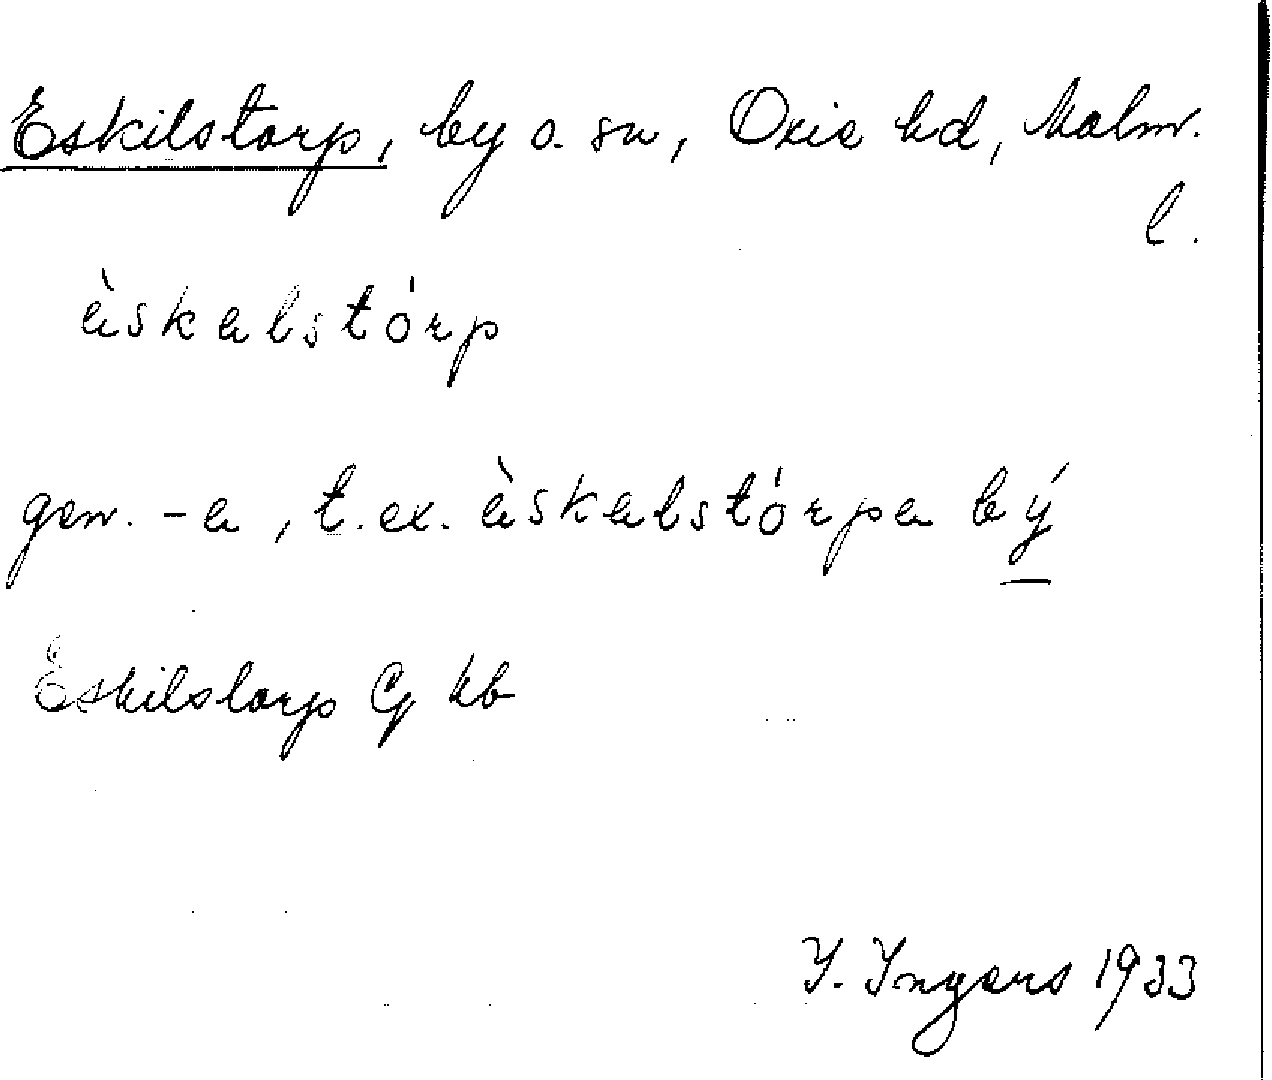 Eskilstorp, by o. sn, Oxie hd, Malm.
l.
èskalstórp
gen. -a, t.ex. èskalstórpa bý
Eskilstorp Gg kb
I. Ingers 1933